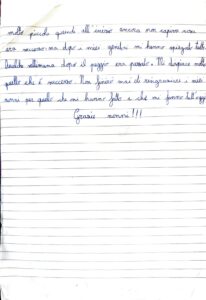 molto piccola quindi all'inizio ancora non capivo cosa
era successo ma dopo i miei genitori mi hanno spiegato tutto.
Qualche settimana dopo il peggio era passato. Mi dispiace molto
quello che è successo. Non finirò mai di ringraziare i miei
nonni per quello che mi hanno fatto e che mi fanno tutt'oggi
Grazie nonni!!!